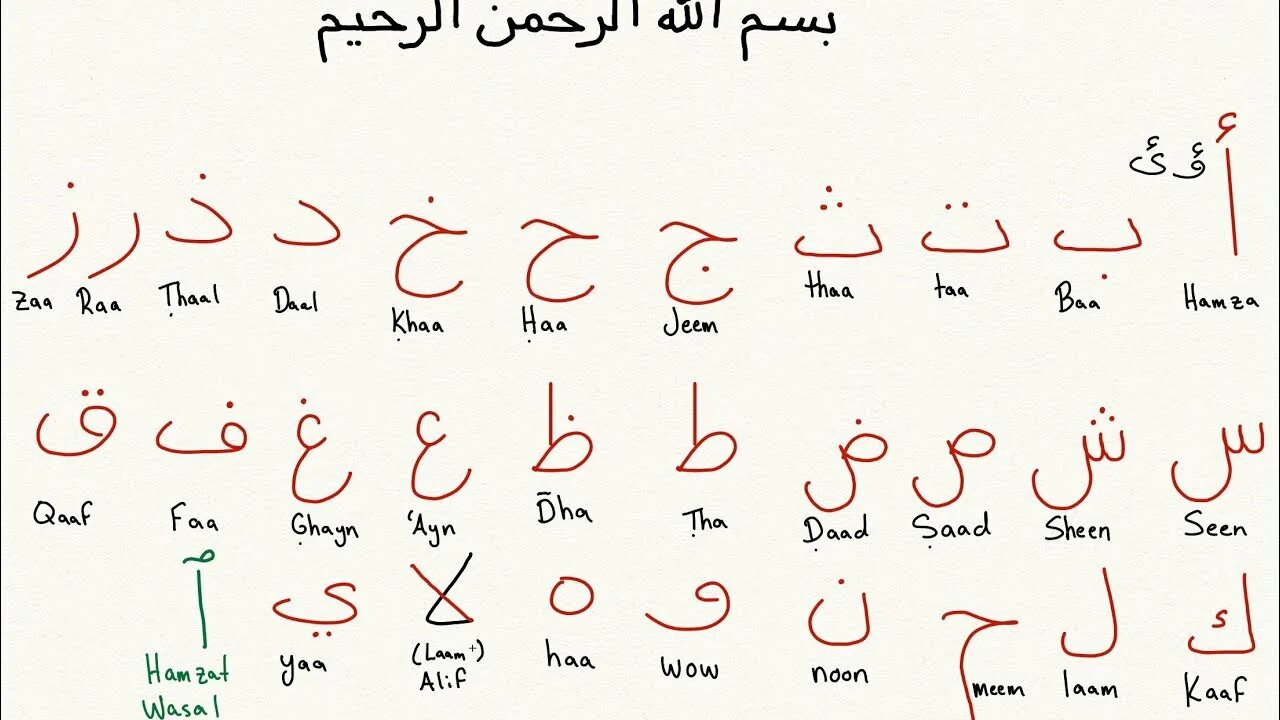 بسم الله الرحمن الرحيم
أ ؤ ئ ب ت ث ج ح خ د ذ ر ز
Hamza Baa taa thaa Jeem Ḥaa Ḳhaa Daal Ṭhaal Raa Zaa
س ش ص ض ط ظ ع غ ف ق
Seen Sheen Ṣaad Ḍaad Ṭha D̄ha ‘Ayn G̣hayn Faa Qaaf
ك ل م ن و ه لا ي ٱ
Kaaf laam meem noon wow haa (Laam+) Alif yaa Hamzat Wasal